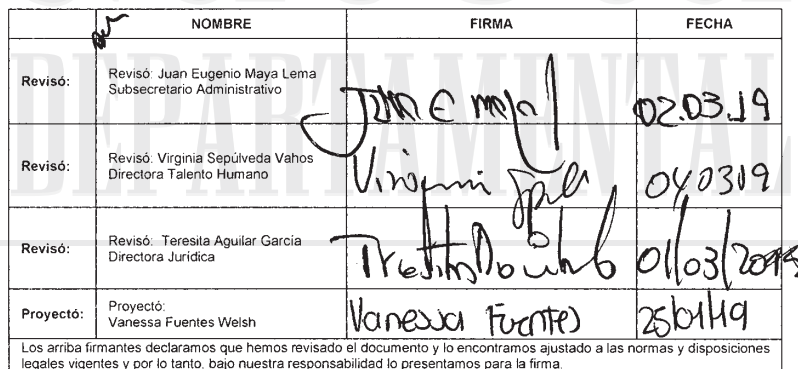 NOMBRE FIRMA FECHA
Revisó: Revisó: Juan Eugenio Maya Lema
Subsecretario Administrativo
Juan E Maya 02.03.19
Revisó: Revisó: Virginia Sepúlveda Vahos
Directora Talento Humano
Virginia 040319
Revisó: Revisó: Teresita Aguilar García
Directora Jurídica
01/03/2019
Proyectó: Proyectó:
Vanessa Fuentes Welsh
Vanessa Fuentes 25/01/19
Los arriba firmantes declaramos que hemos revisado el documento y lo encontramos ajustado a las normas y disposiciones
legales vigentes y por lo tanto, bajo nuestra responsabilidad lo presentamos para la firma.
DEPARTAMENTAL